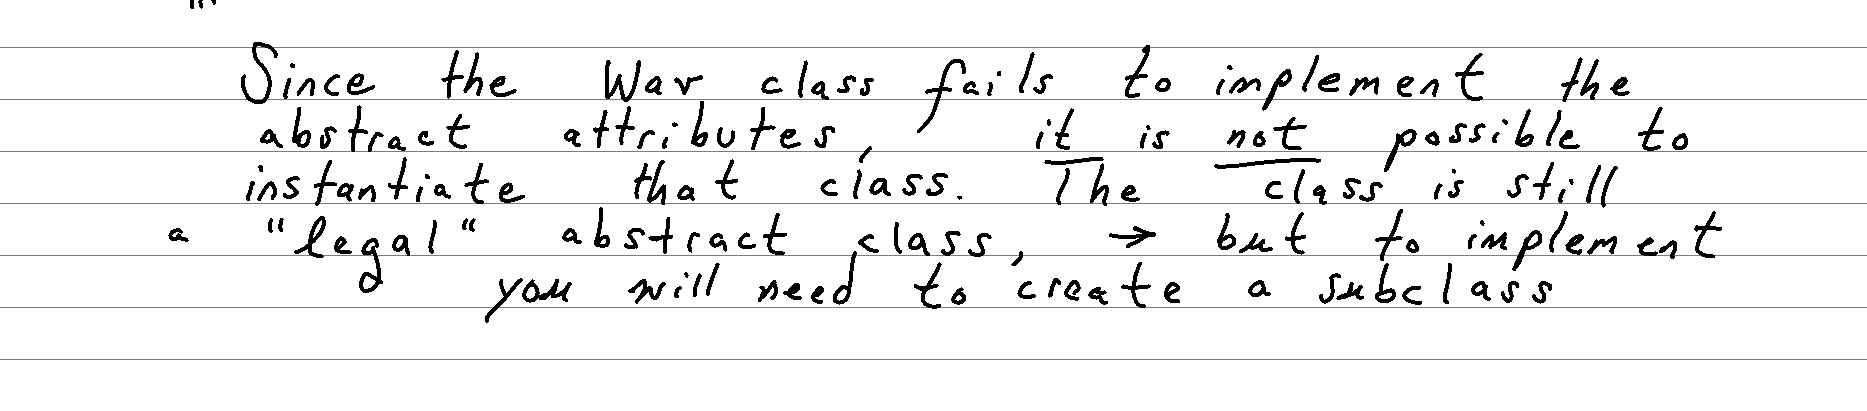 Since the War class fails to implement the
abstract attributes, it is not possible to
instantiate that class. The class is still
a "legal" abstract class, → but to implement
you will need to create a subclass